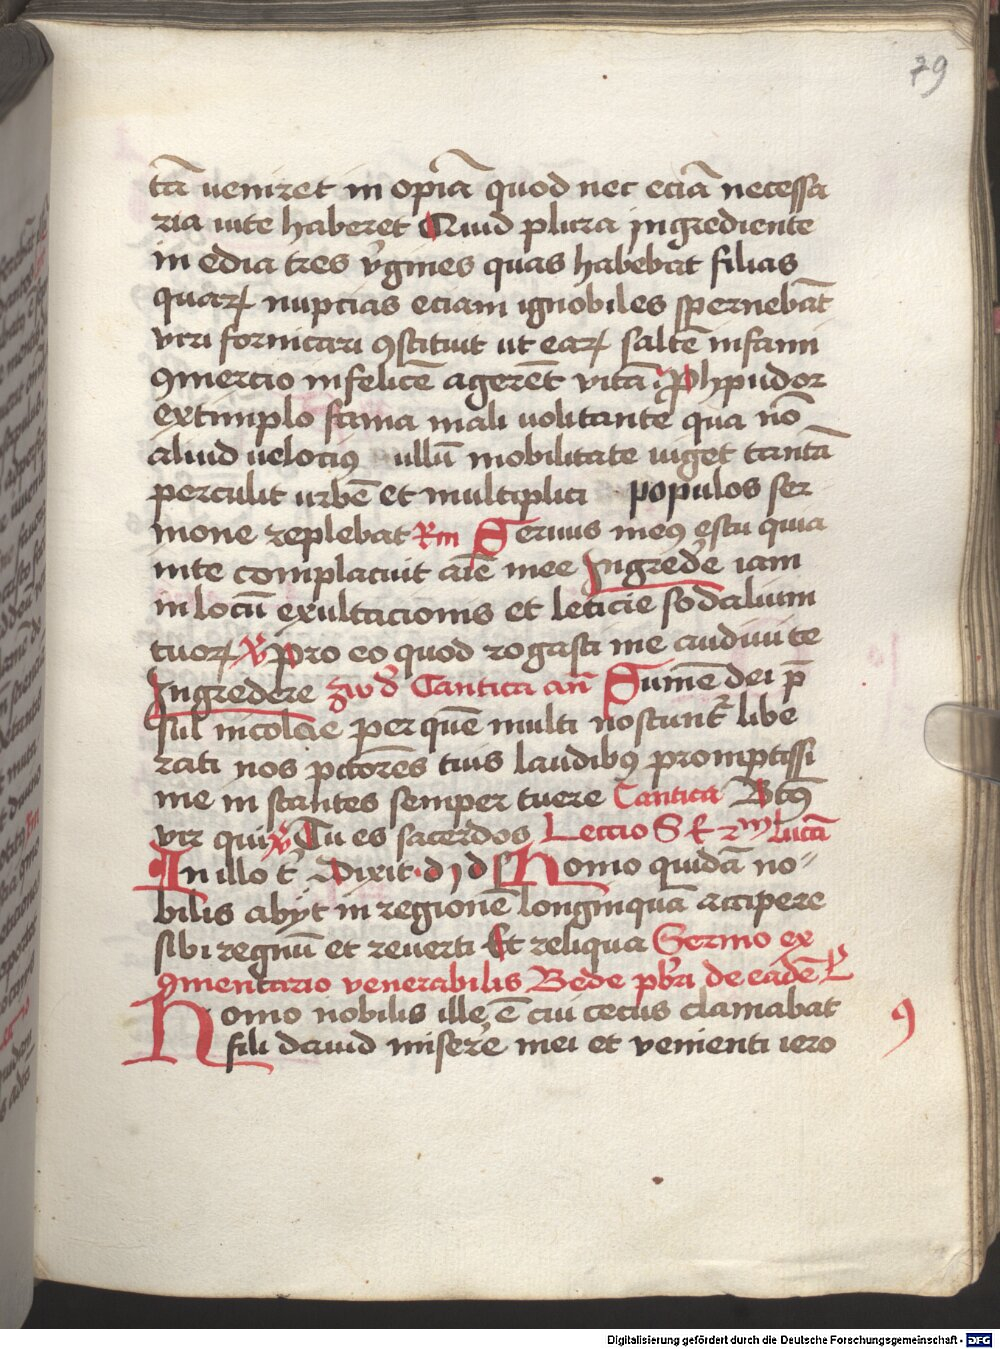 79
tā ueniret in opiā quod nec eciā necessa
ria uite haberet Quid plura ingrediente
in edia tres v̓gines quas habebat filias
quarꝝ nupcias eciam ignobiles spernebāt
vti fornicari ꝯstituit ut earꝝ saltē infami
ꝯmercio infelicē agerēt vitā Proh pudor
extimplo fama mali uolitante qua nō
aliud uelociꝰ ullū mobilitate uiget tantā
perculit urbē et multiplici populos ser
mone replebat Rm Seruus meꝰ es tu quia
in te complacuit aīe mee Ingrede̓ iam
in locū exultacionis et leticie sodalium
tuorꝝ v̓ Pro eo quod rogasti me audiui te
Ingredere Cantica añ Sum̄e dei p̄
sul nicolae per quē multi noscunt᷑ libe
rati nos pctores tuis laudibꝰ promptissi
me instantes semper tuere Cantica Btꝰ
vir qui v̓ Tu es sacerdos Leccio S E zm̄ lucā
In illo t᷑ Dixit d i d s Homo quidā no
bilis abyt in regionē longinquā accipere
sibi regnū et reuerti Et reliqua Sermo ex
ꝯmentario venerabilis Bede pbri de eadē L
Homo nobilis ille ē cui cecus clamabat 9
fili dauid misere̓ mei et venienti iero
Digitalisierung gefördert durch die Deutsche Forschungsgemeinschaft - DFG